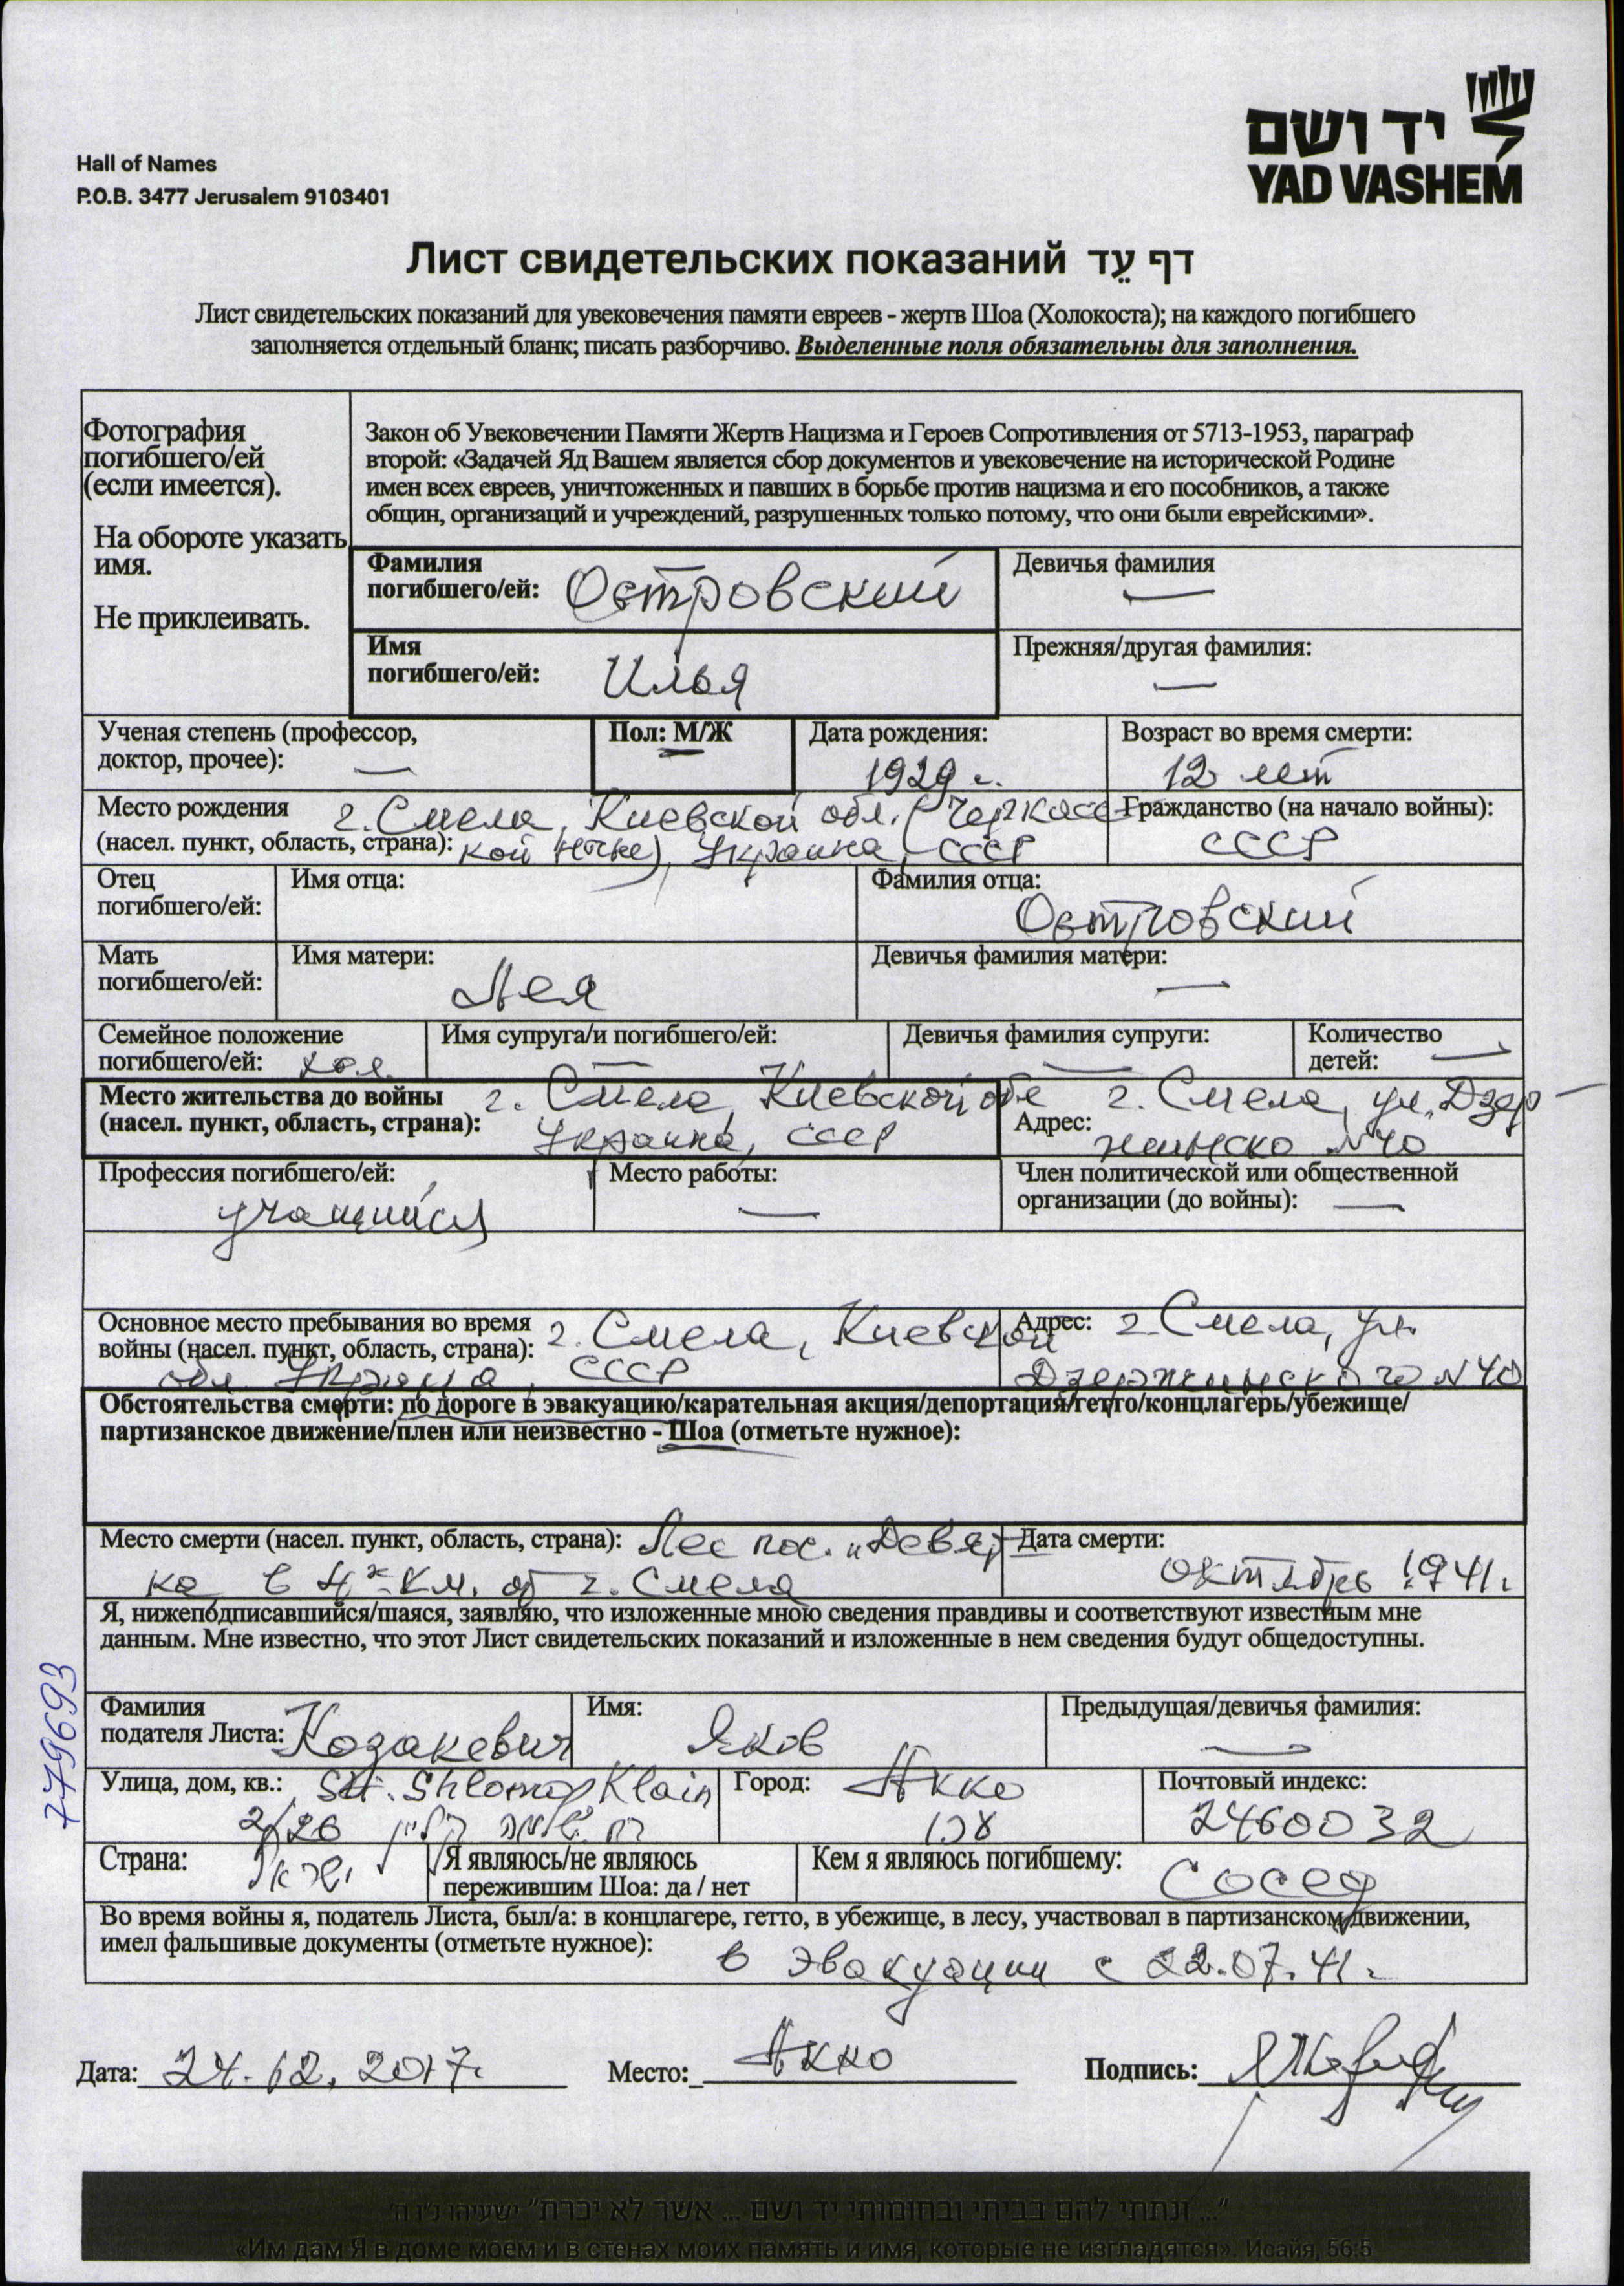 Hall of Names
P.O.B. 3477 Jerusalem 9103401
יד ושם
YAD VASHEM
Лист свидетельских показаний דף עֵד
Лист свидетельских показаний для увековечения памяти евреев - жертв Шоа (Холокоста); на каждого погибшего
заполняется отдельный бланк; писать разборчиво. Выделенные поля обязательны для заполнения.
Фотография
погибшего/ей
(если имеется).
На обороте указать
имя.
Не приклеивать.
Закон об Увековечении Памяти Жертв Нацизма и Героев Сопротивления от 5713-1953, параграф
второй: «Задачей Яд Вашем является сбор документов и увековечение на исторической Родине
имен всех евреев, уничтоженных и павших в борьбе против нацизма и его пособников, а также
общин, организаций и учреждений, разрушенных только потому, что они были еврейскими».
Фамилия
погибшего/ей: Островский
Девичья фамилия
—
Имя
погибшего/ей: Илья
Прежняя/другая фамилия:
—
Ученая степень (профессор,
доктор, прочее): —
Пол: М/Ж
Дата рождения:
1929 г.
Возраст во время смерти:
12 лет
Место рождения г. Смела, Киевской обл. (Черкасс-
(насел. пункт, область, страна): кой ныне), Украина, СССР
Гражданство (на начало войны):
СССР
Отец
погибшего/ей:
Имя отца:
Фамилия отца:
Островский
Мать
погибшего/ей:
Имя матери:
Лея
Девичья фамилия матери:
—
Семейное положение
погибшего/ей: хол.
Имя супруга/и погибшего/ей:
—
Девичья фамилия супруги:
—
Количество
детей: —
Место жительства до войны г. Смела, Киевской обл
(насел. пункт, область, страна): Украина, СССР
г. Смела, ул. Дзер-
Адрес: жинско №40
Профессия погибшего/ей:
учащийся
Место работы:
—
Член политической или общественной
организации (до войны): —
Основное место пребывания во время г. Смела, Киевской
войны (насел. пункт, область, страна):
обл Украина, СССР
Адрес: г. Смела, ул.
Дзержинского №40
Обстоятельства смерти: по дороге в эвакуацию/карательная акция/депортация/гетто/концлагерь/убежище/
партизанское движение/плен или неизвестно - Шоа (отметьте нужное):
Место смерти (насел. пункт, область, страна): Лес пос. "Девят-
ка в 4х км. от г. Смела
Дата смерти:
октябрь 1941г.
Я, нижеподписавшийся/шаяся, заявляю, что изложенные мною сведения правдивы и соответствуют известным мне
данным. Мне известно, что этот Лист свидетельских показаний и изложенные в нем сведения будут общедоступны.
779693
Фамилия
подателя Листа: Козакевич
Имя:
Яков
Предыдущая/девичья фамилия:
—
Улица, дом, кв.: Str. Shlomo Klain
2/26 רח' שלמה קליין
Город: Акко
עכו
Почтовый индекс:
2460032
Страна:
Я являюсь/не являюсь
пережившим Шоа: да / нет
Кем я являюсь погибшему:
Сосед
Во время войны я, податель Листа, был/а: в концлагере, гетто, в убежище, в лесу, участвовал в партизанском движении,
имел фальшивые документы (отметьте нужное): в эвакуации с 22.07.41г.
Дата: 24.12.2017г.
Место: Акко
Подпись:
"... ונתתי להם בביתי ובחומותי יד ושם ... אשר לא יכרת" ישעיהו נ"ו ה'
«Им дам Я в доме моем и в стенах моих память и имя, которые не изгладятся». Исайя, 56:5